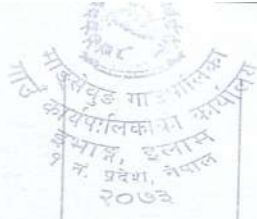 माङसेबुङ गाउँपालिका
गाउँ कार्यपालिकाको कार्यालय
इभाङ्ग, इलाम
१ नं. प्रदेश, नेपाल
२०७३